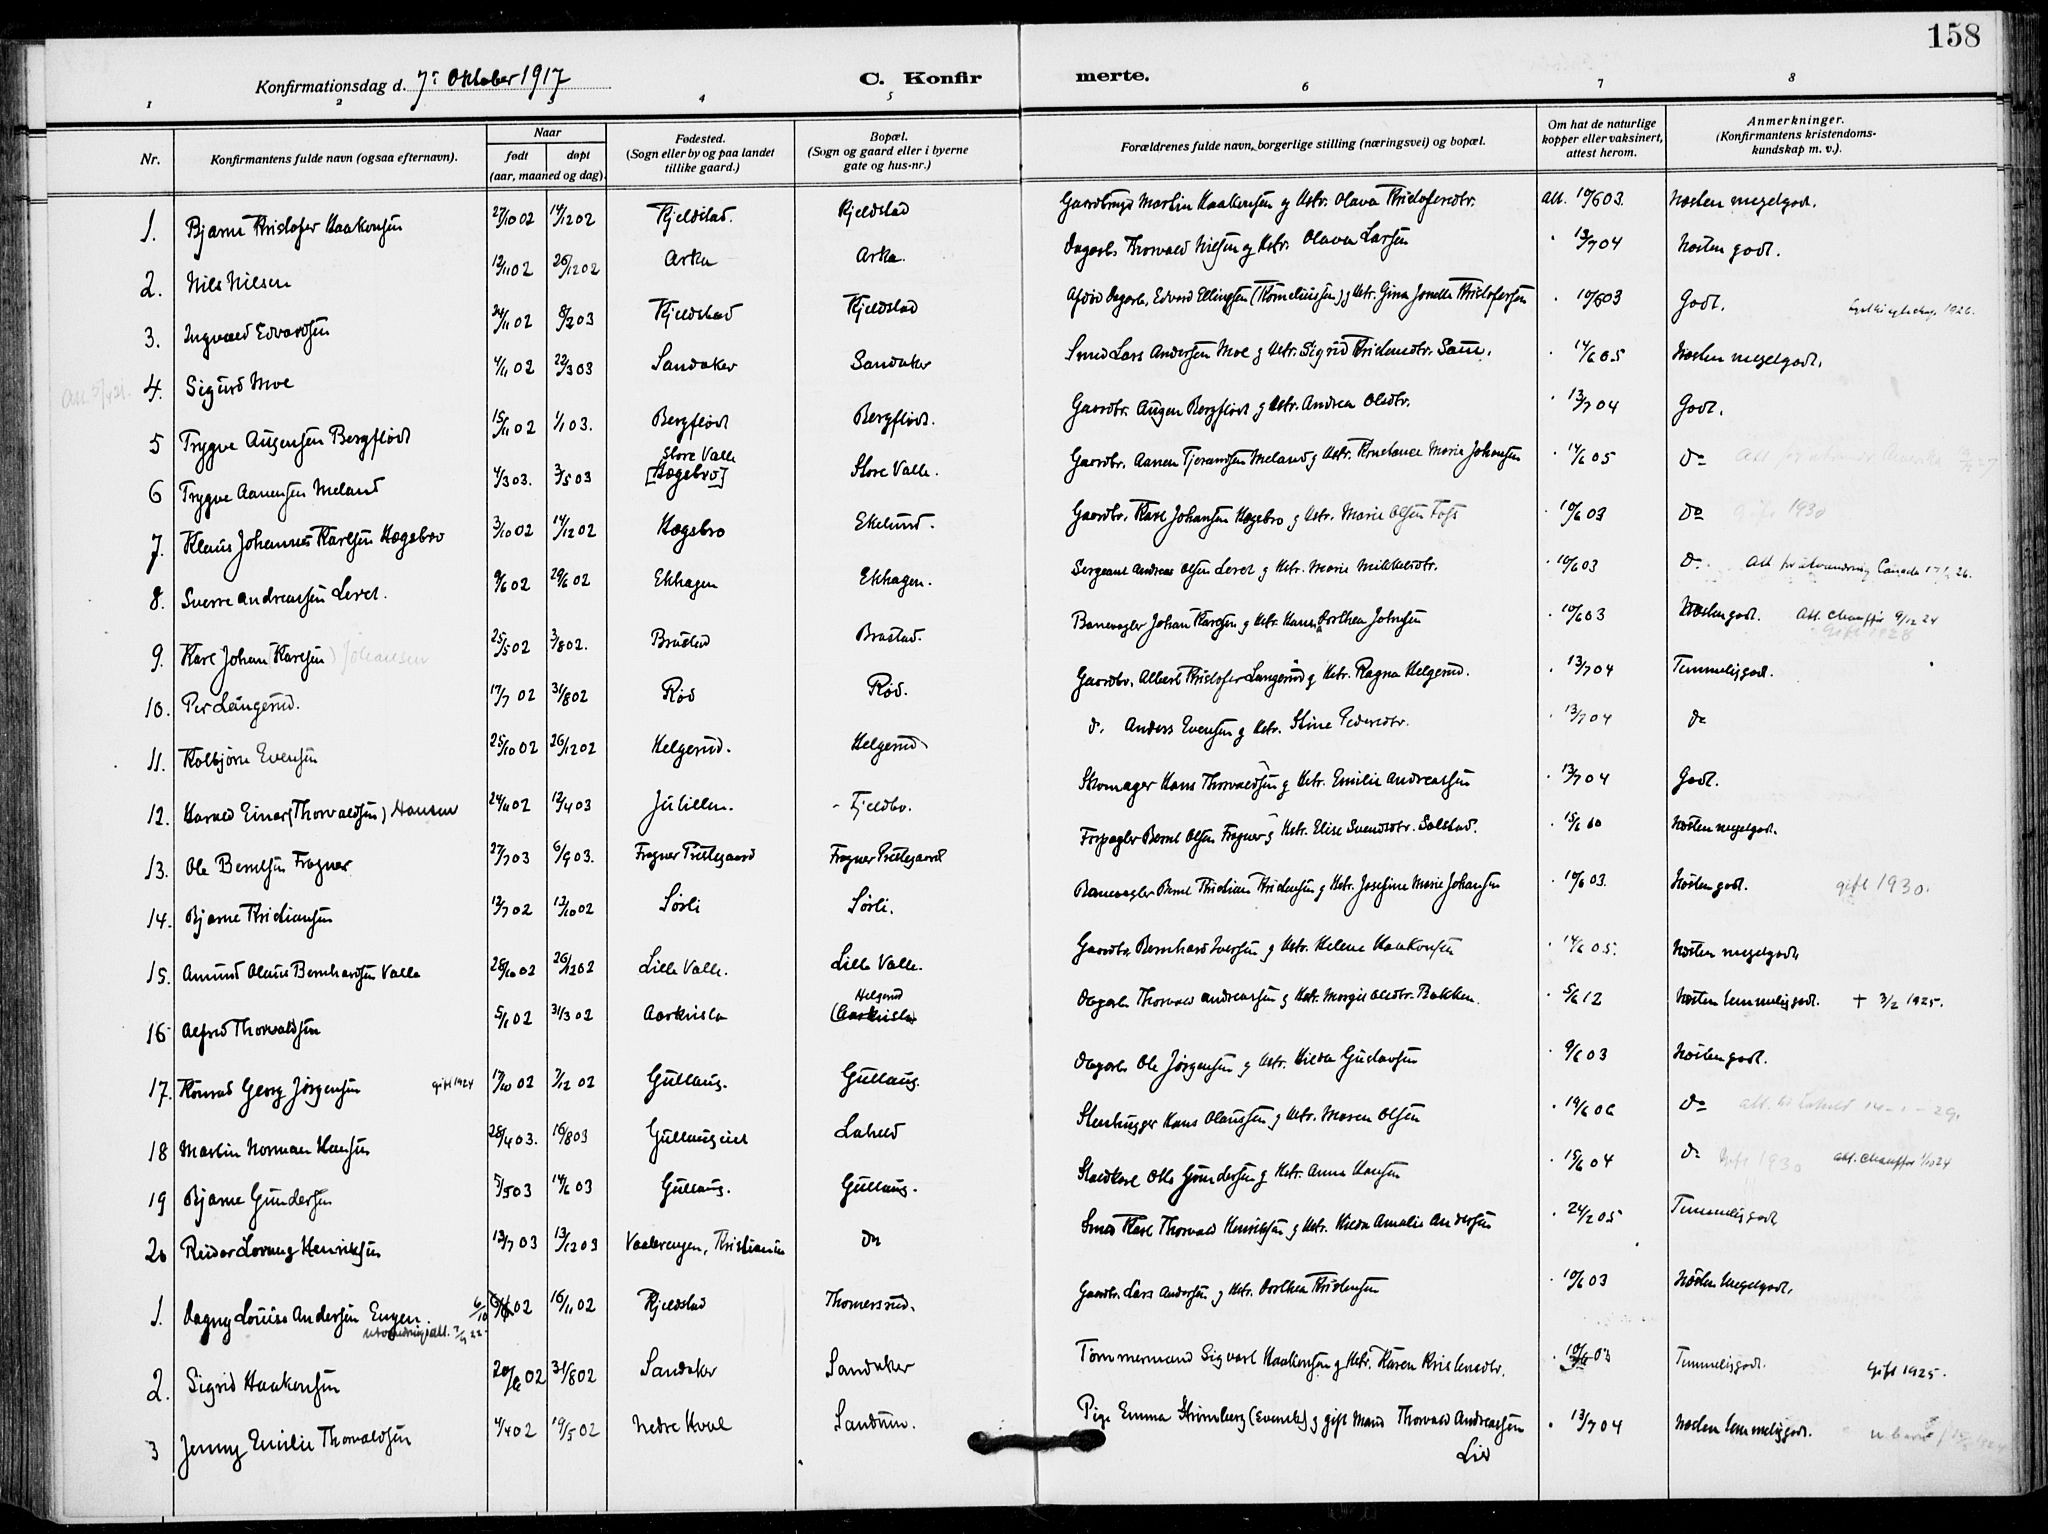 158
Konfirmationsdag d. 7de Oktober 1917 C. Konfirmerte.
1 2 3 4 5 6 7 8
Nr. Konfirmantens fulde navn (ogsaa efternavn). Naar født døpt (aar, maaned og dag). Fødested. (Sogn eller by og paa landet tillike gaard.) Bopæl. (Sogn og gaard eller i byerne gate og hus-nr.) Forældrenes fulde navn, borgerlige stilling (næringsvei) og bopæl. Om hat de naturlige kopper eller vaksinert, attest herom. Anmerkninger. (Konfirmantens kristendoms-kundskap m. v.).
1. Bjarne Kristofer Haakensen 27/10 02 14/12 02 Kjeldstad. Kjeldstad Gaardbruger Martin Haakensen og Hstr. Olava Kristofersdtr. Att. 10/6 03. Næsten megetgodt.
2. Nils Nilsen 12/11 02 26/12 02 Arka Arka. Dagarb. Thorvald Nilsen og Hstr. Olava Larsen 13/7 04 Næsten godt.
3. Ingvald Edvardsen 24/11 02 8/2 03 Kjeldstad Kjeldstad Afdød Dagarb. Edvard Ellingsen (Korneliussen) og Hstr. Gina Jonette Kristofersen 10/6 03 Godt. 1926.
4. Sigurd Moe 4/11 02 22/3 03 Sandaker Sandaker Smed Lars Andersen Moe og Hstr. Sigrid Kristensdtr. Saue. 14/6 05 Næsten megetgodt.
5 Trygve Augensen Bergflødt 15/11 02 1/1 03. Bergflødt Bergflødt. Gaardbr. Augen Bergflødt og Hstr. Andrea Olsdtr. 13/7 04 Godt.
6 Trygve Aanensen Meland 4/3 03. 3/5 03 Store Valle [Hægsbro] Store Valle. Gaardbr. Aanen Tjerandsen Meland og Hstr. Konstance Marie Johansen 14/6 05 Do
7. Klaus Johannes Karlsen Hægsbro 3/10 02 14/12 02 Hægsbro Ekelund. Gaardbr. Karl Johansen Hægsbro og Hstr. Marie Olsen Foss 10/6 03 Do Gift 1930
8. Sverre Andreassen Leret. 9/6 02 29/6 02 Ekhagen Ekhagen. Sergeant Andreas Olsen Leret og Hstr. Marie Mikkelsdtr. 10/6 03 Do. Att for utvandring Canada 26.
9. Karl Johan (Karlsen) Johansen 25/5 02 3/8 02. Brastad Brastad. Banevogter Johan Karlsen og Hstr. Hanna Dorthea Johnsen 10/6 03 Næsten godt. Att. Chauffør 9/12 24 Gift 1928
10. Per Langerud. 17/7 02 31/8 02 Rød Rød. Gaardbr. Albert Kristofer Langerud og Hstr. Ragna Helgerud. 13/7 04 Temmeliggodt.
11. Kolbjørn Evensen 25/10 02 26/12 02 Helgerud. Helgerud do. Anders Evensen og Hstr. Stine Pedersdtr. 13/7 04 do
12. Harald Einar (Thorvaldsen) Hansen 24/11 02 12/4 03 Julillen. Fjeldbo. Skomager Hans Thorvaldsen og Hstr. Emilie Andreassen 13/7 04 Godt.
13. Ole Berntsen Frogner 27/7 03 6/9 03. Frogner Prestegaard Frogner Prestegaard Forpagter Bernt Olsen Frogner og Hstr. Elise Svendsdtr. Solstad. 15/6 10 Næsten megetgodt.
14. Bjarne Kristiansen 12/7 02 12/10 02 Sørli Sørli. Banevogter Bernt Kristian Kristensen og Hstr. Josefine Marie Johansen 10/6 03. Næsten godt. gift 1930.
15. Amund Olaus Bernhardsen Valle 28/10 02 26/12 02 Lille Valle. Lille Valle. Gaardbr. Bernhard Iversen og Hstr. Helene Haakonsen 14/6 05. Næsten megetgodt.
16 Alfred Thorvaldsen 5/1 02 31/3 02 Aaskisla Helgerud (Aaskisla) Dagarb. Thorvald Andreassen og Hstr. Margit Olsdtr. Bakken. 5/6 12 Næsten temmeliggodt. † 3/2 1925.
17. Konrad Georg Jørgensen gift 1924 17/10 02 7/12 02 Gullaug. Gullaug. Dagarb. Ole Jørgensen og Hstr. Hilda Gustavsen 9/6 03 Næsten godt.
18 Martin Norman Hansen 28/4 03. 16/8 03 Gullaugeiet Laheld Stenhugger Hans Olaussen og Hstr. Maren Olsen 19/6 06 Do
19 Bjarne Gundersen 5/5 03 14/6 03 Gullaug. Gullaug. Staldkarl Otto Gundersen og Hstr. Anna Hansen 15/6 04 Do Gift 1930 Att. Chauffør 1/10 24
20 Reidar Lorang Henriksen 13/7 03 13/12 03 Vaalerengen, Kristiania Do Smed Karl Thorvald Henriksen og Hstr. Hilda Amalie Andersen 24/2 05 Temmeliggodt
1. Dagny Louise Andersen Engen. Utvandringsatt. 7/9 22 6/10 02 16/11 02 Kjeldstad Thomesrud. Gaardbr. Lars Andersen og Hstr. Dorthea Kristensen 10/6 03 Næsten Megetgodt.
2. Sigrid Haakensen 20/6 02 31/8 02 Sandaker Sandaker Tømmermand Sigvart Haakensen og Hstr. Karen Kristensdtr. 10/6 03 Temmeliggodt. Gift 1925.
3 Jenny Emilie Thorvaldsen 4/4 02 19/5 02 Nedre Hval Sandum. Pige Emma Strømberg (Svensk) og gift Mand Thorvald Andreassen Lied 13/7 04 Næsten temmeliggodt.